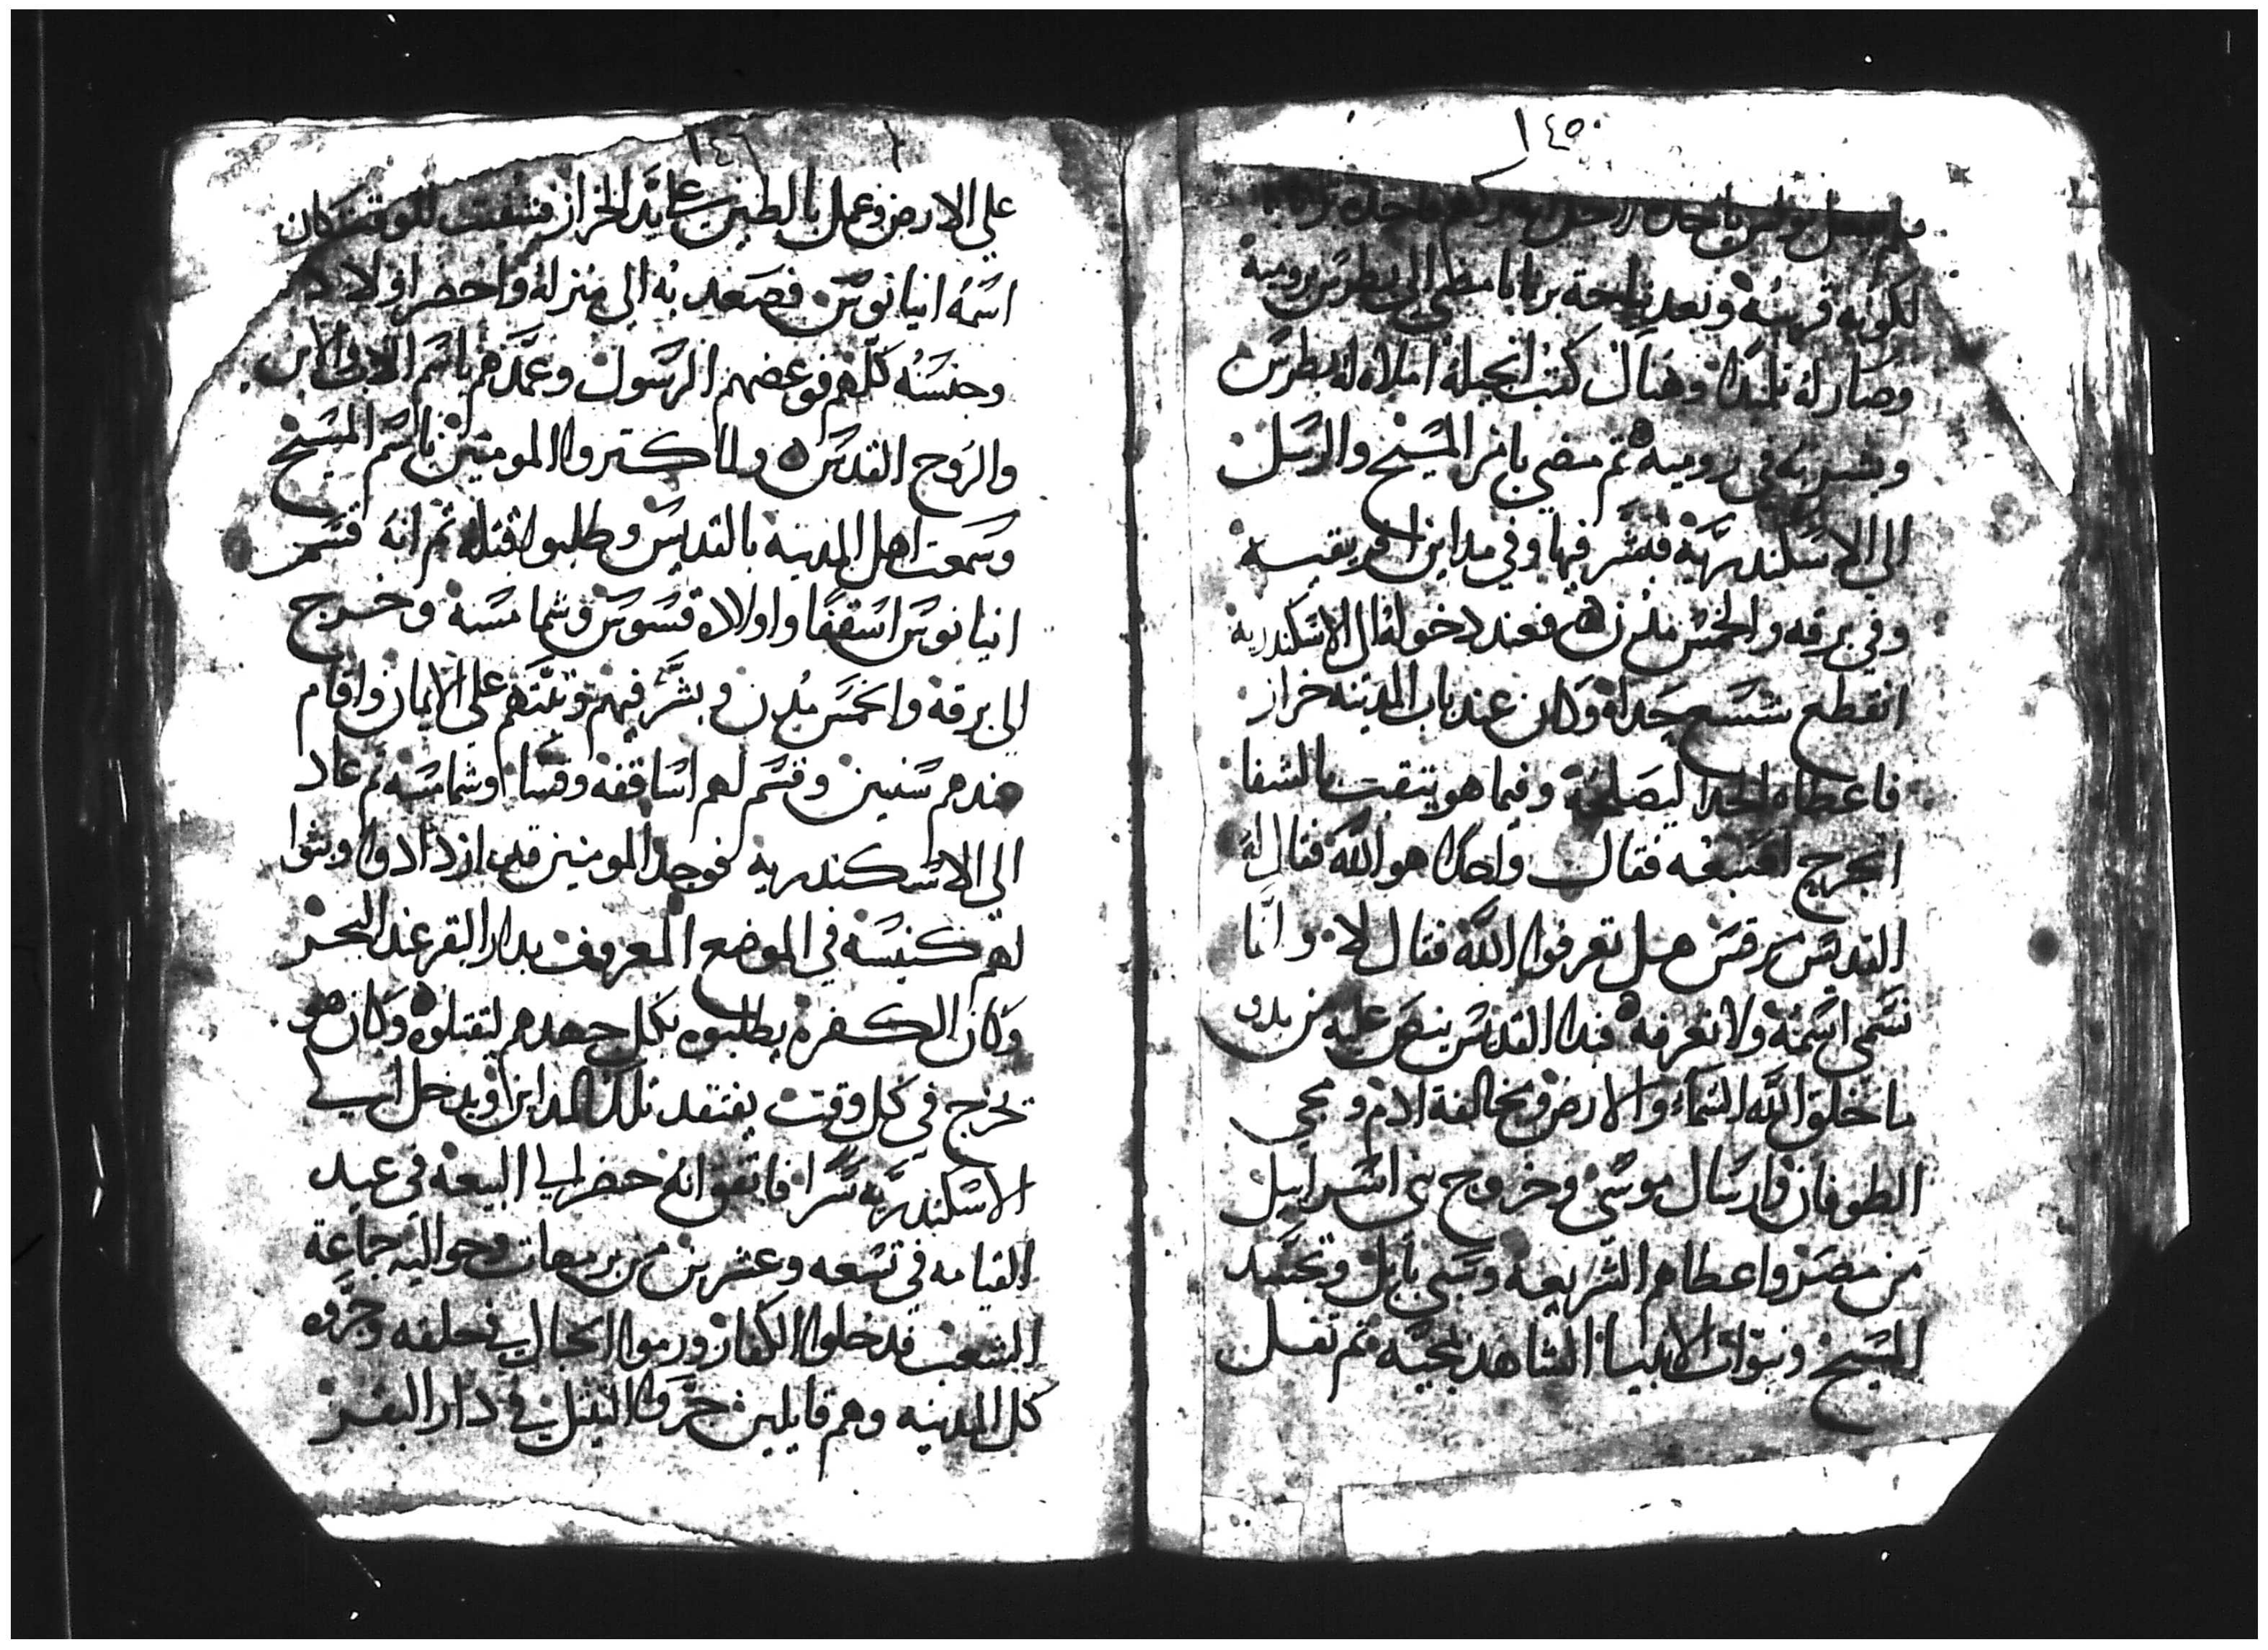 ١٤٥
لكونه قريبه وبعد نياحة برنابا مضى الى بطرس برومية
وصار له تلميذا وهناك كتب انجيله املاه له بطرس
وبشر به في رومية ثم مضي بامر المسيح والرسل
الى الاسكندرية فبشر فيها وفي مداين افريقية
وفي برقه والخمس مدن فعند دخوله الى الاسكندرية
انقطع شسع حداه وكان عند باب المدينه خراز
فاعطاه الحدا ليصلحه وفيما هو يثقب بالشفا
انجرح اصبعه فقال واحد هو الله فقال له
القديس مرقس هل تعرفوا الله فقال لا وانا
نسمى اسمه ولا نعرفه فبدا القديس ينص عليه من بدو
ما خلق الله السماء والارض ومخالفة ادم ومجي
الطوفان وارسال موسى وخروج بنى اسراييل
من مصر واعطاهم الشريعه وسبي بابل وتجسد
المسيح ونبوات الانبيا الشاهد بمجيه ثم تفل
١٤٦
علي الارض وعمل بالطين علي يد الخراز فشفت للوقت وكان
اسمه انيانوس فصعد به الى منزله واحضر اولاد
وجنسه كلهم فوعضهم الرسول وعمدهم باسم الاب والابن
والروح القدس ولما كتروا المومنين باسم المسيح
وسمعت اهل المدينه بالقديس وطلبوا قتله ثم انه قسم
انيانوس اسقفا واولاده قسوس وشمامسة وخرج
الى برقة والخمس مدن وبشر فيهم وثبتهم على الايمان واقام
عندهم سنين وقسم لهم اساقفه وقسا وشمامسه ثم عاد
الى الاسكندريه فوجد المومنين قد ازدادوا وبنوا
لهم كنيسه في الموضع المعروف بدار البقر عند البحر
وكان الكفره يطلبوه بكل جهدهم ليقتلوه وكان هو
يخرج في كل وقت يفتقد تلك المداين ويدخل الي
الاسكندريه سرا فاتفق انه حضر الي البيعه في عيد
القيامه في تسعه وعشرين من برمهات وحواليه جماعة
الشعب فدخلوا الكفار ورموا الحبال في حلقه وجروه
كل المدينه وهم قايلين جروا التيتل في دار البقر